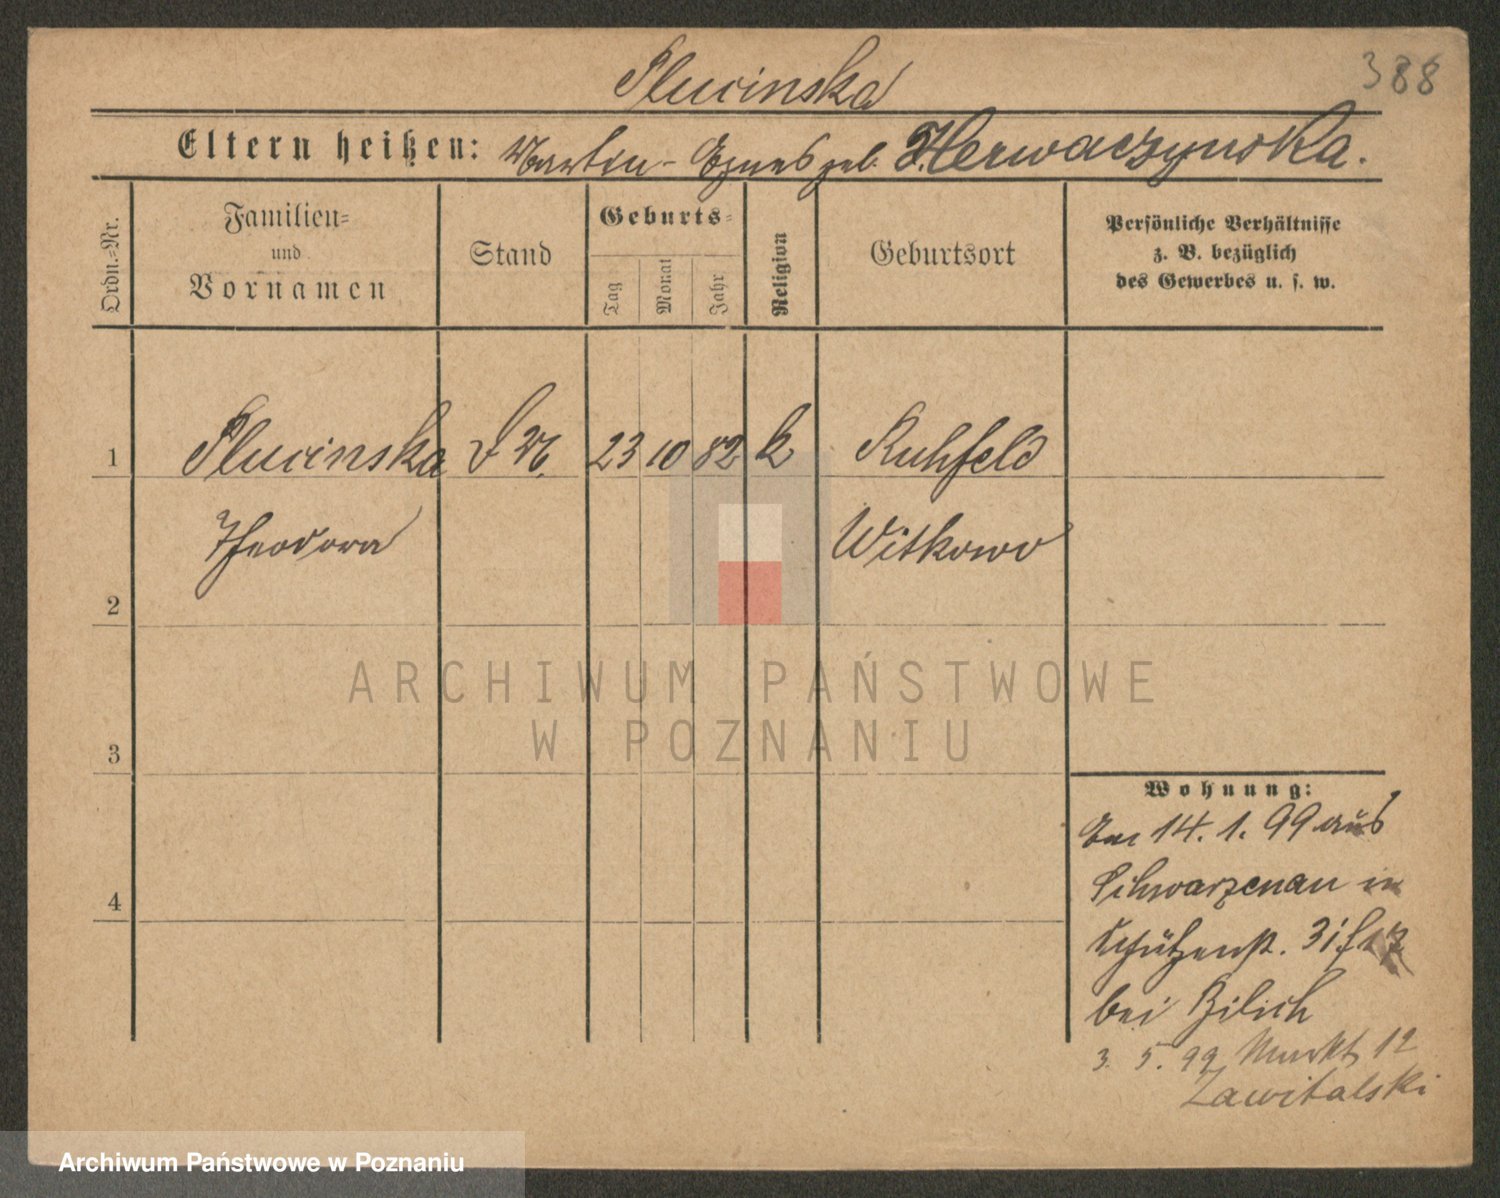 388
Plucinska
Eltern heißen: Martin - Agnes geb. Herwaczynska.
Ordn.-Nr.
Familien-
und
Vornamen
Stand
Geburts-
Tag
Monat
Jahr
Religion
Geburtsort
Persönliche Verhältnisse
z. B. bezüglich
des Gewerbes u. s. w.
1 Plucinska 23 10 82 k Ruhfeld
Theodora Witkowo
2
3
4
Wohnung:
Am 14. 1. 99 aus
Schwarzenau in
Schützenst. 31
bei Zilich
3. 5. 99 Markt 12
Zawitalski
ARCHIWUM PAŃSTWOWE
W POZNANIU
Archiwum Państwowe w Poznaniu